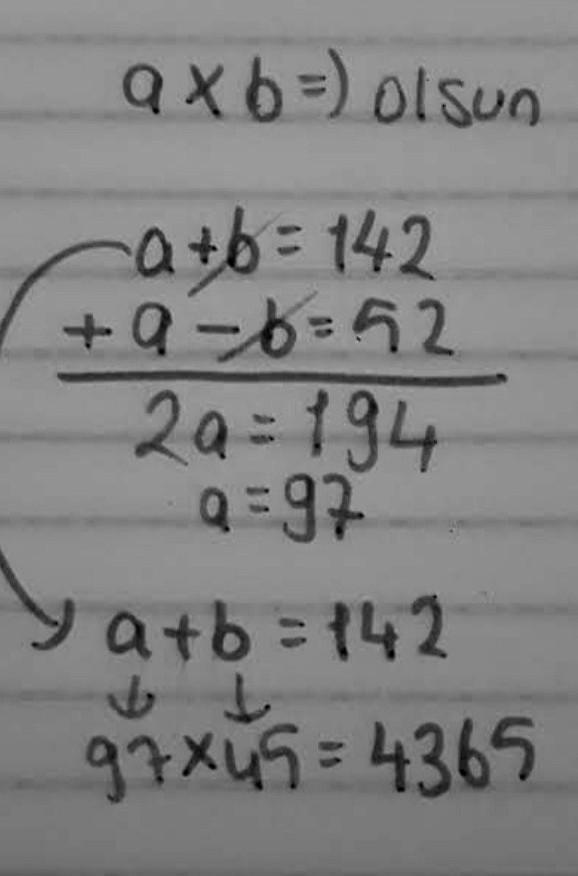 a x b => olsun
a + b = 142
+ a - b = 52
2a = 194
a = 97
a + b = 142
↓ ↓
97 x 45 = 4365